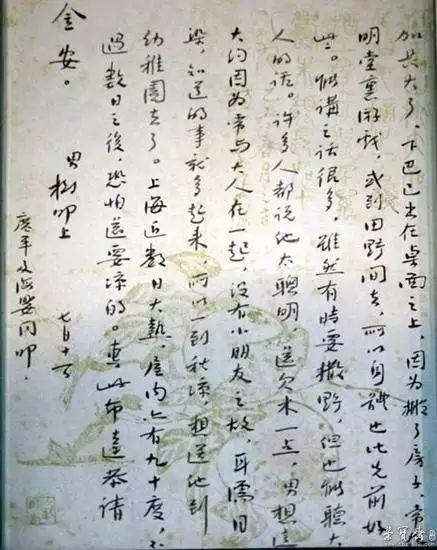 加长大了，下巴已出在桌面之上，因為搬了房子，常
明堂裏游戏，或到田野间去，所以身體也比先前好
些。能講之话很多，雖然有時要撒野，但也能聽大
人的话。许多人都说他太聰明，還欠木一点，男想這
大约因为常与大人在一起，没有小朋友之故，耳濡目
染，知道的事就多起来，所以一到秋凉，想送他到
幼稚園去了。上海近数日大熱，屋内亦有九十度，不
過数日之後，恐怕還要凉的。専此布達 恭请
金安。
男樹叩上 七月十一日
廣平及海嬰同叩．